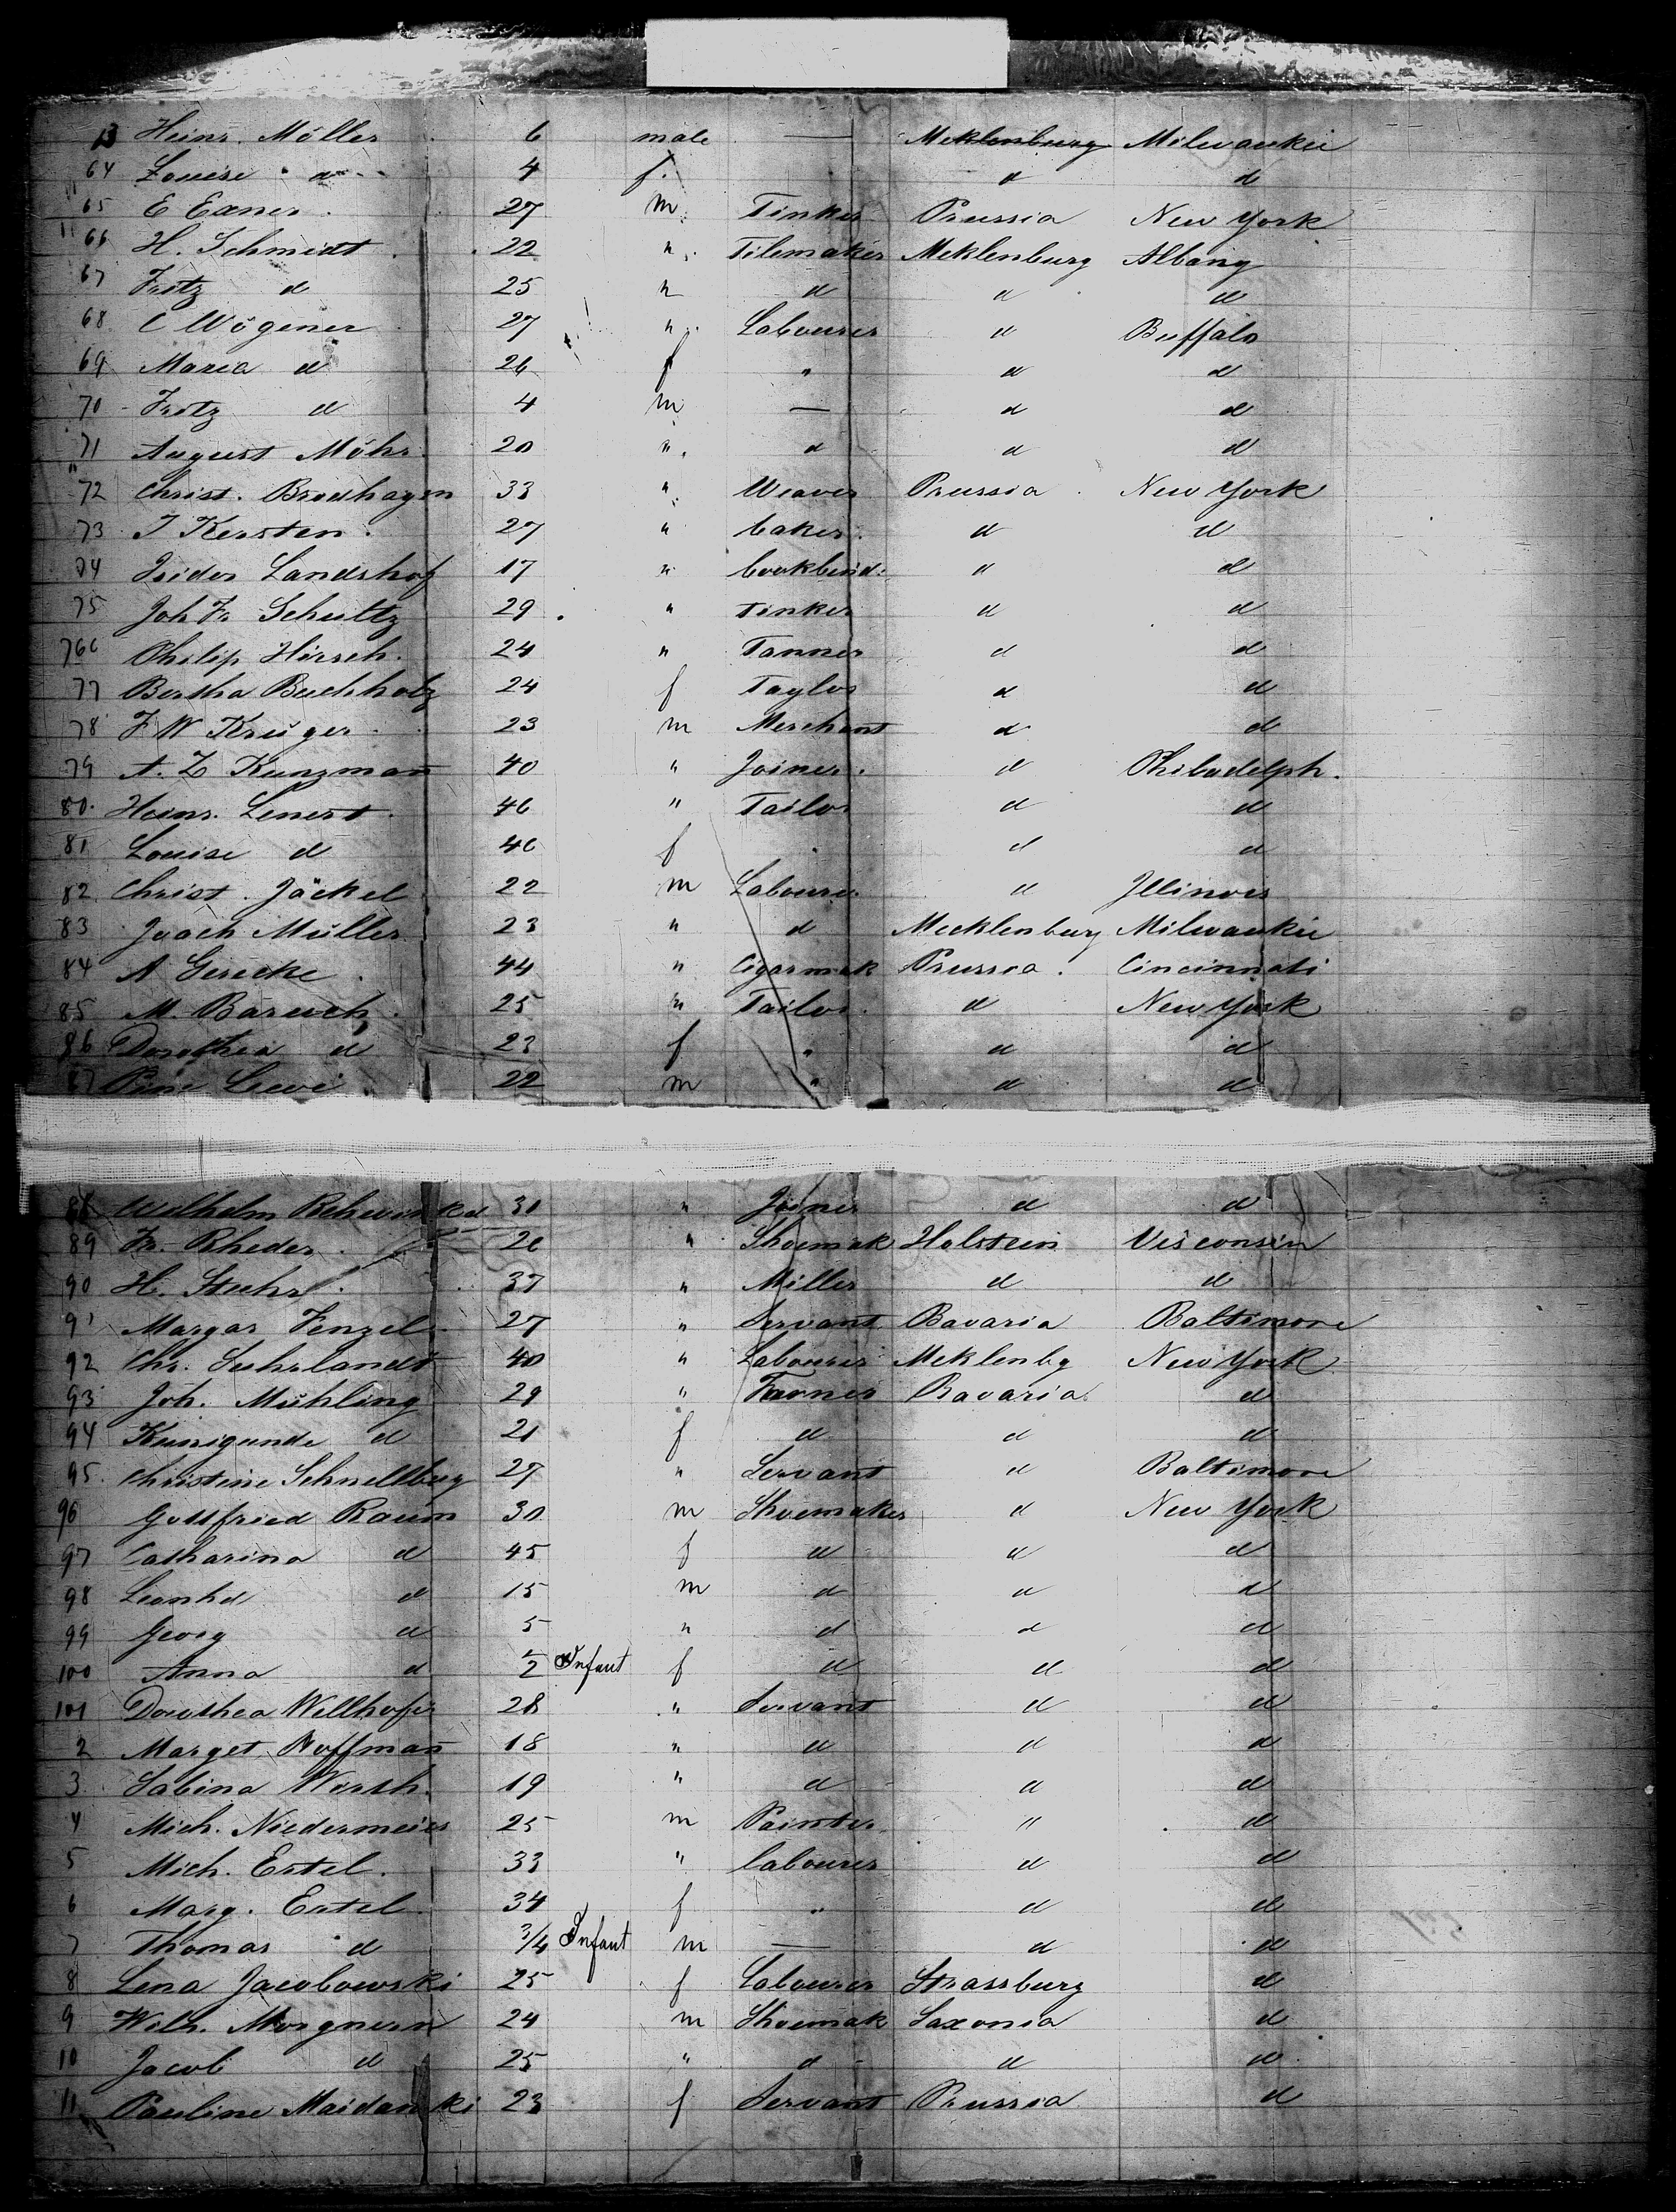 63 Heinr. Möller 6 male — Meklenburg Milwaukie
64 Louise d 4 f. d d
65 E Exner. 27 m. Tinker Prussia New York
66 H. Schmidt. 22 " Tilemaker Meklenburg Albany
67 Fritz d 25 " d d d
68 C Wögener 27 " Labourer d Buffalo
69 Maria d 26 f " d d
70 Fritz d 4 m — d d
71 August Möhr. 20 " d d d
72 Christ. Brodhagen 33 " Weaver Prussia New York
73 J Kersten. 27 " baker. d d
74 Isidor Landshof 17 " bookbind: d d
75 Joh Fr Schultz 29 " Tinker d d
76 Philip Hirsch. 24 " Tanner d d
77 Bertha Buchholz 24 f Taylor d d
78 F W Krüger. 23 m Merchant d d
79 A. Z Kunzman̄ 40 " Joiner. d Philadelph.
80. Heinr. Lenert. 46 " Tailor d d
81 Louise d 46 f " d d
82 Christ. Jäckel 22 m Labourer d Illinois
83 Joach Müller 23 " d Mecklenburg Milwaukie
84 A Gericke. 44 " Cigarmak Prussia. Cincinnati
85 M. Baruch. 25 " Tailor. d New York
86 Dorothea d 23 f " d d
87 Levi 22 m " d d
88 Wilhelm 31 " Joiner d d
89 Fr. Rheder. 26 " Shoemak Holstein Visconsin
90 H. Stuhr. 37 " Miller d d
91 Margar Fenzel. 27 " Servant Bavaria Baltimore
92 Chr. Suhrlandt 40 " Labourer Meklenbg New York
93 Joh. Mühling 29 " Farmer Bavaria d
94 Kunigunde d 21 f d d d
95. Christine Schnellburg 27 " Servant d Baltimore
96 Gottfried Raum 30 m Shoemaker d New York
97 Catharina d 45 f d d d
98 Leonhd d 15 m d d d
99 Georg d 5 " d d d
100 Anna d Infant f d d d
101 Dorothea Willhofer 28 " Servant d d
2 Marget Hoffman̄ 18 " d d d
3. Sabina Worth. 19 " d d d
4 Mich. Niedermeier 25 m Painter. " d
5 Mich. Ertel. 33 " labourer d d
6 Marg. Ertel. 34 f " d d
7 Thomas d 3/4 Infant m — d d
8 Lena Jacobowski 25 f Labourer Strassburg d
9 Wilh. Morgnern 24 m Shoemak Saxonia d
10 Jacob d 25 " d d d
11 Pauline Maidanski 23 f Servant Prussia d